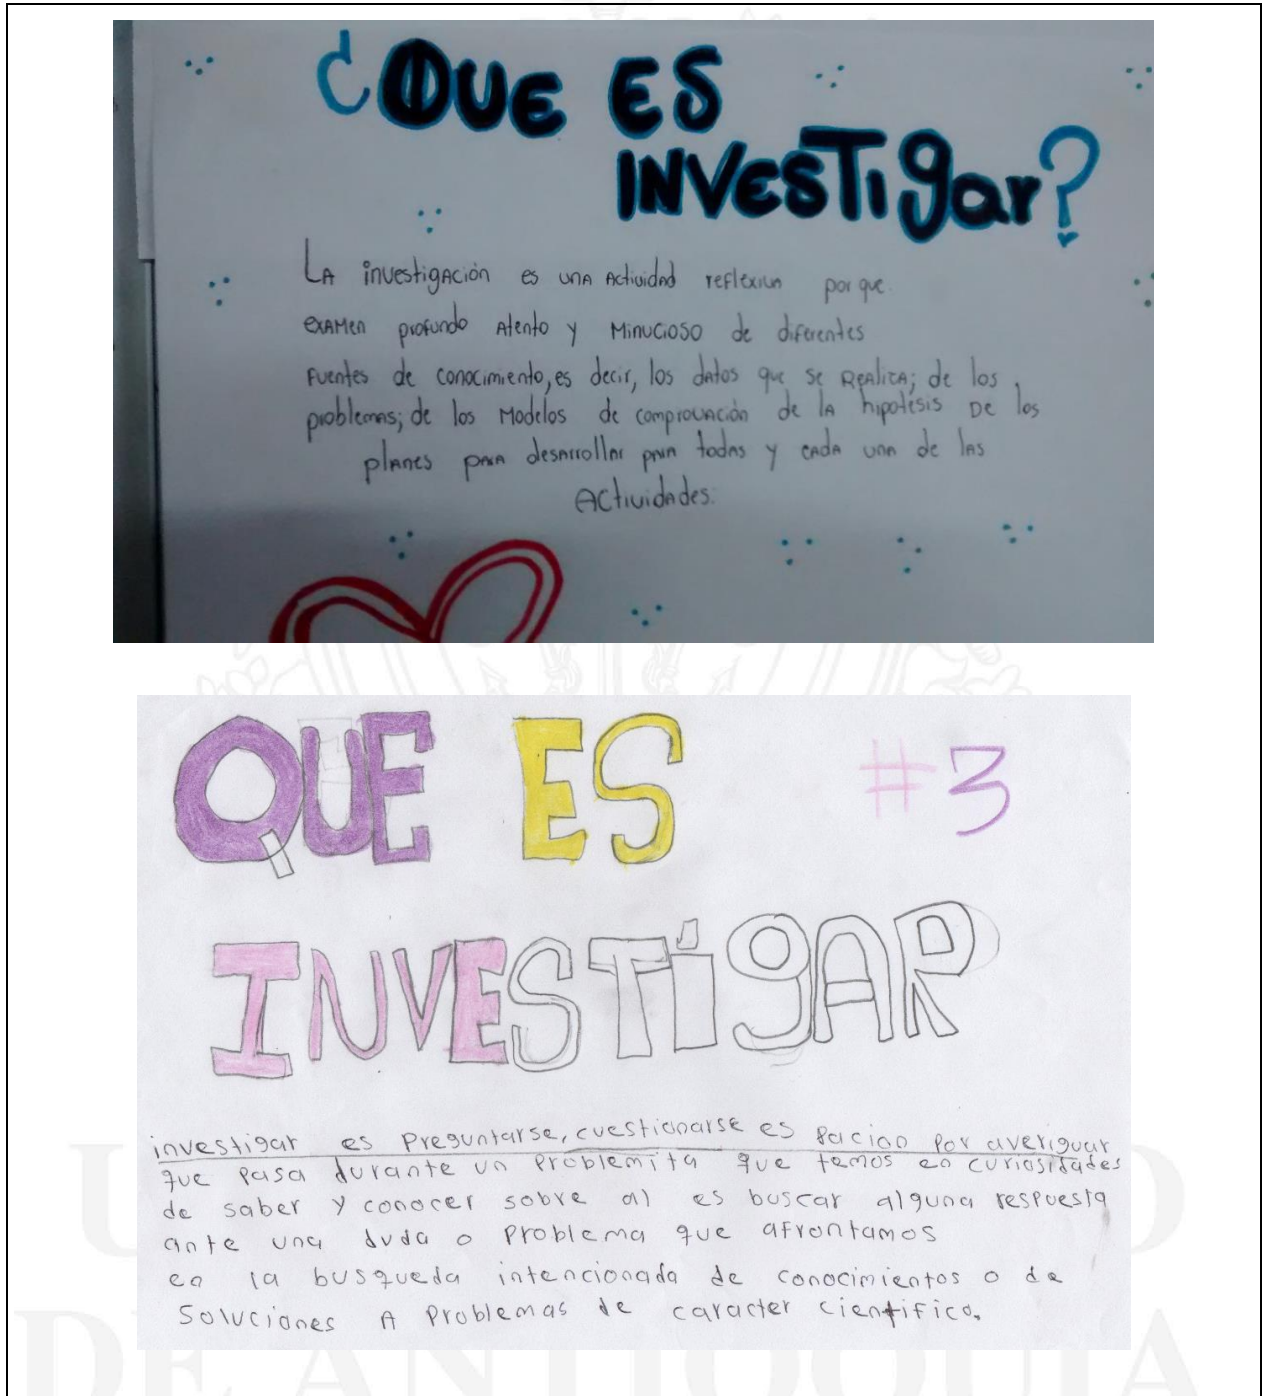 ¿QUE ES
INVESTigar?
LA investigAción es unA Actividad reflexiun por que.
exAMen profundo Atento y MinuCioso de diferentes
Fuentes de conocimiento, es decir, los datos que se REAliza; de los
problemas; de los Modelos de comprovación de la hipotesis DE los
planes para desarrollar para todas y cada una de las
Actividades.
QUE ES #3
INVESTigAR
investigar es Preguntarse, cuestionarse es pacion por averiguar
que pasa durante un problemita que temos en curiosidades
de saber y conocer sobre al es buscar alguna respuesta
ante una duda o problema que afrontamos
en la busqueda intencionada de conocimientos o de
Soluciones A Problemas de caracter cientifico.
DE ANTIOQUIA